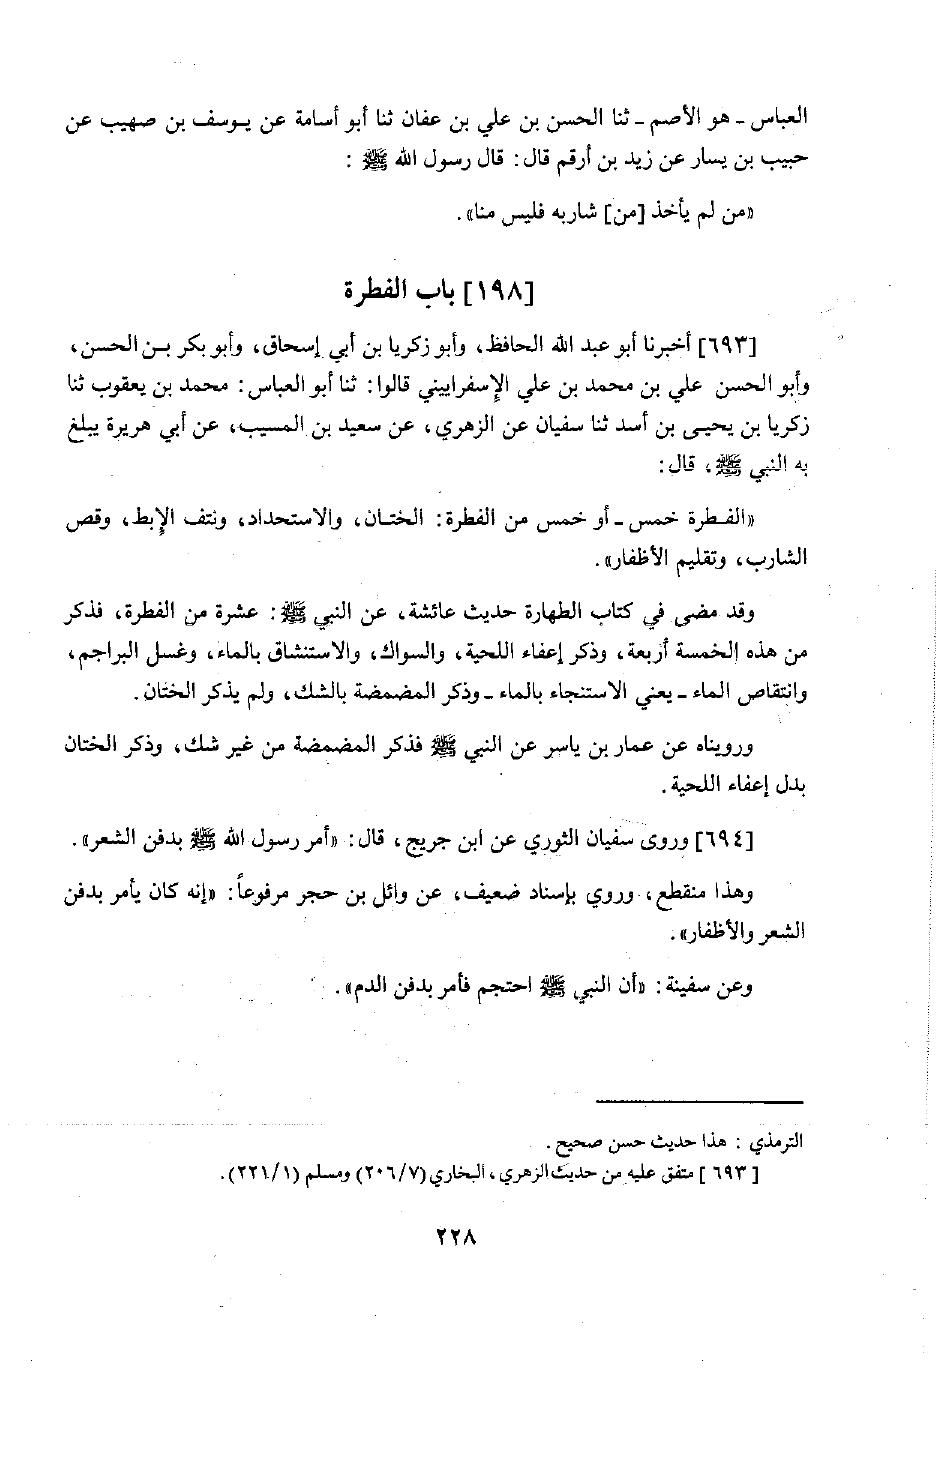 العباس ـ هو الأصم ـ ثنا الحسن بن علي بن عفان ثنا أبو أسامة عن يوسف بن صهيب عن
حبيب بن يسار عن زيد بن أرقم قال: قال رسول الله ﷺ :
«من لم يأخذ [من] شاربه فليس منا».
[١٩٨] باب الفطرة
[٦٩٣] أخبرنا أبو عبد الله الحافظ، وأبو زكريا بن أبي إسحاق، وأبو بكر بن الحسن،
وأبو الحسن علي بن محمد بن علي الإسفراييني قالوا: ثنا أبو العباس: محمد بن يعقوب ثنا
زكريا بن يحيى بن أسد ثنا سفيان عن الزهري، عن سعيد بن المسيب، عن أبي هريرة يبلغ
به النبي ﷺ، قال:
«الفطرة خمس ـ أو خمس من الفطرة: الختان، والاستحداد، ونتف الإبط، وقص
الشارب، وتقليم الأظفار».
وقد مضى في كتاب الطهارة حديث عائشة، عن النبي ﷺ: عشرة من الفطرة، فذكر
من هذه الخمسة أربعة، وذكر إعفاء اللحية، والسواك، والاستنشاق بالماء، وغسل البراجم،
وانتقاص الماء ـ يعني الاستنجاء بالماء ـ وذكر المضمضة بالشك، ولم يذكر الختان.
ورويناه عن عمار بن ياسر عن النبي ﷺ فذكر المضمضة من غير شك، وذكر الختان
بدل إعفاء اللحية.
[٦٩٤] وروى سفيان الثوري عن ابن جريج، قال: «أمر رسول الله ﷺ بدفن الشعر».
وهذا منقطع، وروي بإسناد ضعيف، عن وائل بن حجر مرفوعاً: «إنه كان يأمر بدفن
الشعر والأظفار».
وعن سفينة: «أن النبي ﷺ احتجم فأمر بدفن الدم».
الترمذي : هذا حديث حسن صحيح.
[٦٩٣] متفق عليه من حديث الزهري، البخاري (٢٠٦/٧) ومسلم (٢٢١/١).
٢٢٨